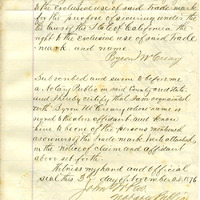 to the exclusive use of said trade mark
for the purpose of securing under the
the laws of the State of California the
right to the exclusive use of said trade
mark and name
Byron
Subscribed and sworn to before me
a Notary Public in said County and State
and I hereby certify that I am acquainted
with Byron whose name is
signed to the affidavit and know
him to be one of the persons
the trade mark
in the notice of claim and affidavit
above set forth.
Witness my hand and official
seal this 3 day of November A.D. 1876
John
Notary Public